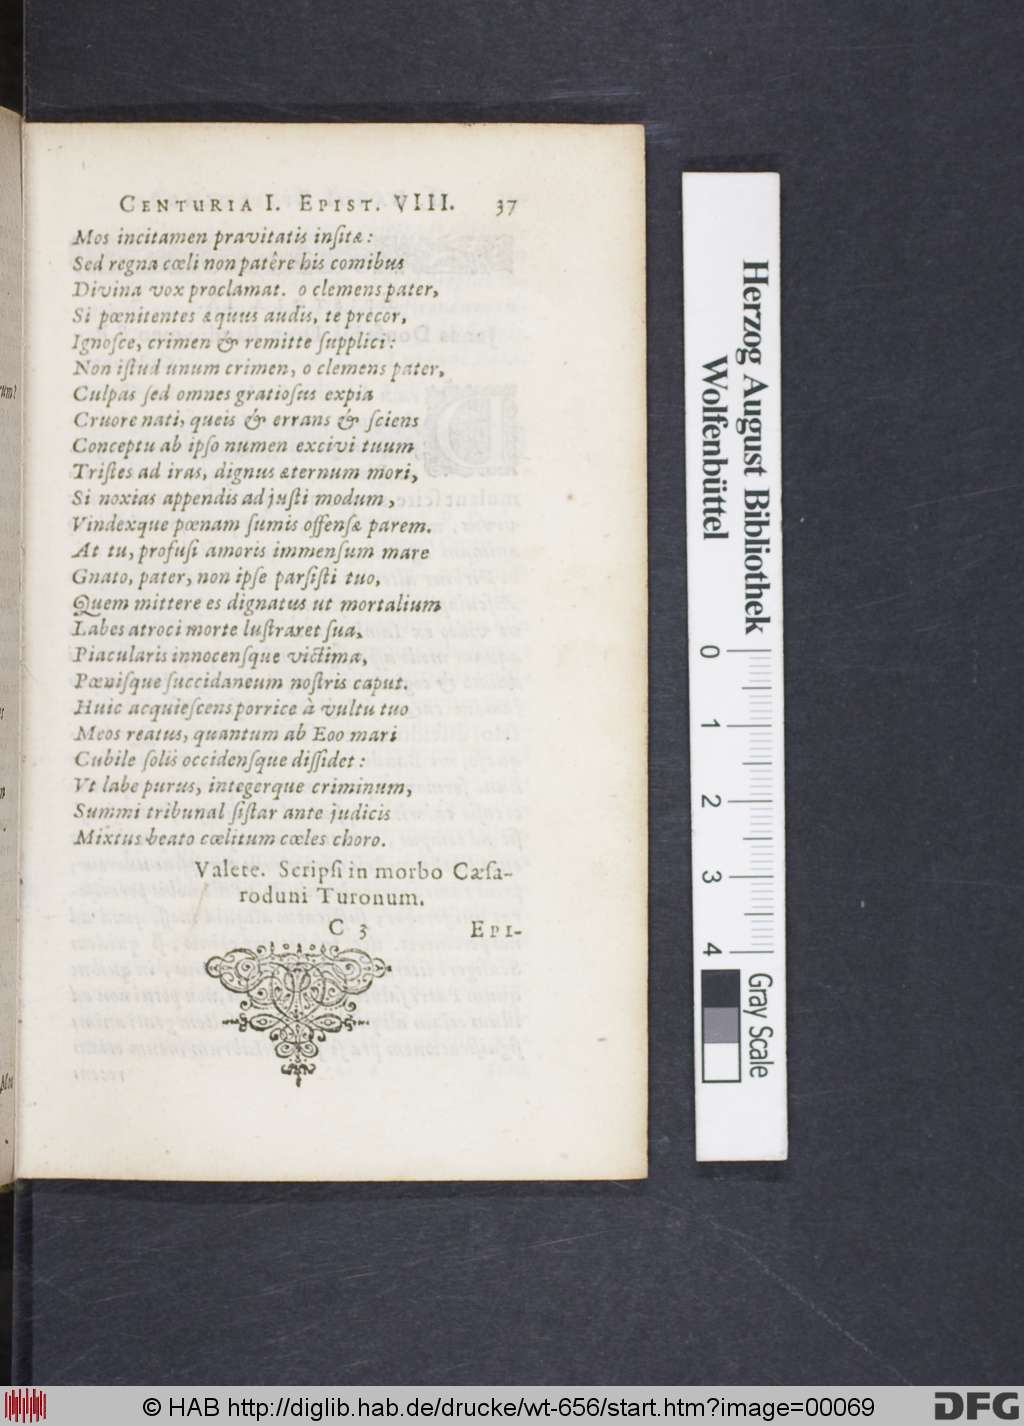 CENTURIA I. EPIST. VIII. 37
Mos incitamen pravitatis inſitæ:
Sed regna cœli non patêre his comibus
Divina vox proclamat. o clemens pater,
Si pœnitentes æquus audis, te precor,
Ignoſce, crimen & remitte ſupplici:
Non iſtud unum crimen, o clemens pater,
Culpas ſed omnes gratioſus expia
Cruore nati, queis & errans & ſciens
Conceptu ab ipſo numen excivi tuum
Triſtes ad iras, dignus æternum mori,
Si noxias appendis ad juſti modum,
Vindexque pœnam ſumis offenſæ parem.
At tu, profuſi amoris immenſum mare
Gnato, pater, non ipſe parſiſti tuo,
Quem mittere es dignatus ut mortalium
Labes atroci morte luſtraret ſua,
Piacularis innocenſque victima,
Pœniſque ſuccidaneum noſtris caput.
Huic acquieſcens porrice à vultu tuo
Meos reatus, quantum ab Eoo mari
Cubile ſolis occidenſque diſſidet:
Vt labe purus, integerque criminum,
Summi tribunal ſiſtar ante judicis
Mixtus beato cœlitum cœles choro.
Valete. Scripſi in morbo Cæſa-
roduni Turonum.
C 3 EPI-
Herzog August Bibliothek
Wolfenbüttel
0 1 2 3 4
Gray Scale
© HAB http://diglib.hab.de/drucke/wt-656/start.htm?image=00069
DFG